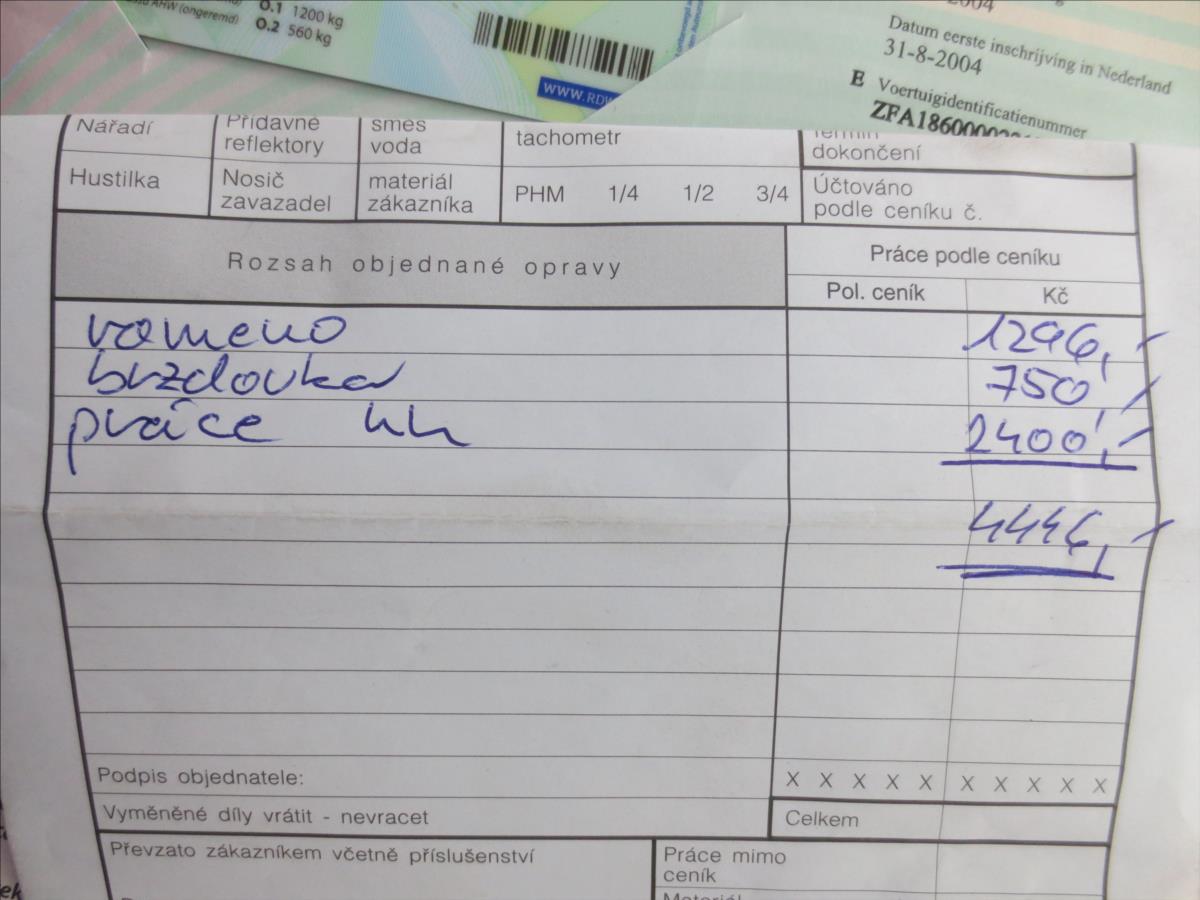 AHW (ongeremd)
O.1 1200 kg
O.2 560 kg
2004
Datum eerste inschrijving in Nederland
31-8-2004
E Voertuigidentificatienummer
WWW.RDW
Nářadí
Přídavné reflektory
směs voda
tachometr
Termín dokončení
Hustilka
Nosič zavazadel
materiál zákazníka
PHM 1/4 1/2 3/4
Účtováno podle ceníku č.
Rozsah objednané opravy
Práce podle ceníku
Pol. ceník
Kč
rameno 1296,-
brzdovka 750,-
práce 4h 2400,-
4446,-
Podpis objednatele:
X X X X X X X X X X
Vyměněné díly vrátit - nevracet
Celkem
Převzato zákazníkem včetně příslušenství
Práce mimo ceník